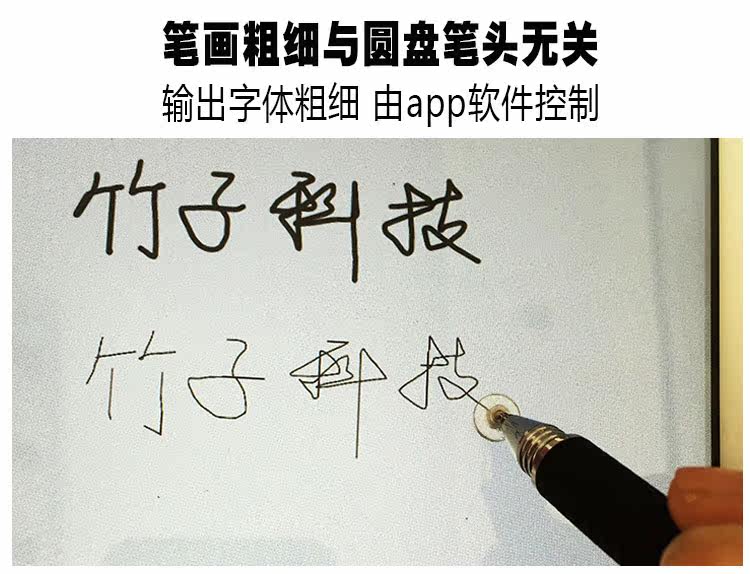 笔画粗细与圆盘笔头无关
输出字体粗细 由app软件控制
竹子科技
竹子科技